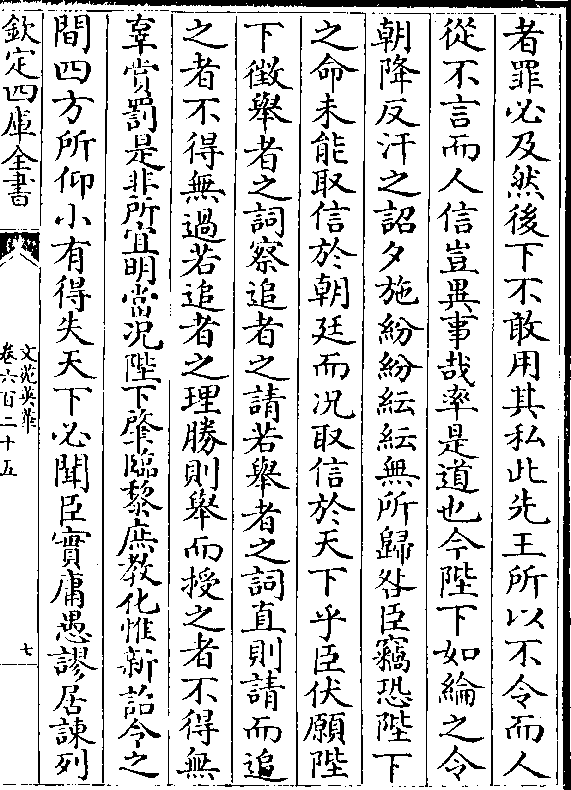 者罪必及然後下不敢用其私此先王所以不令而人
從不言而人信豈異事哉率是道也今陛下如綸之令
朝降反汗之詔夕施紛紛紜紜無所歸咎臣竊恐陛下
之命未能取信於朝廷而况取信於天下乎臣伏願陛
下徵舉者之詞察追者之請若舉者之詞直則請而追
之者不得無過若追者之理勝則舉而授之者不得無
辜賞罰是非所宜明當况陛下肇臨黎庶教化惟新詔令之
間四方所仰小有得失天下必聞臣實庸愚謬居諫列
欽定四庫全書
文苑英華
卷六百二十五
七